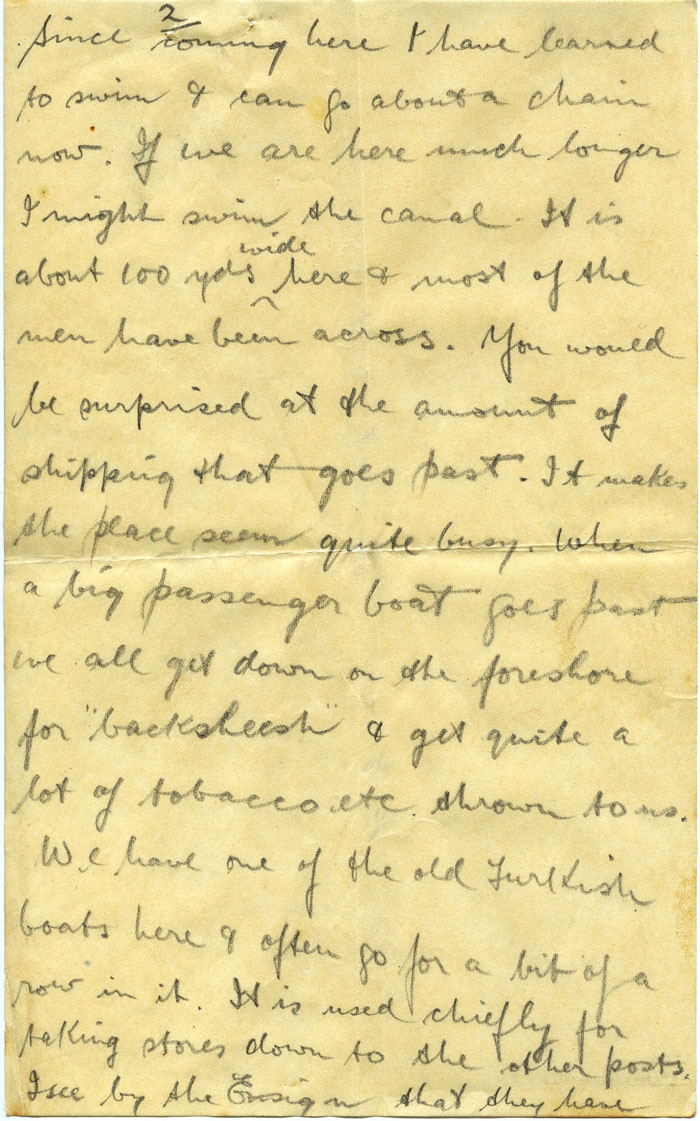 2
Since coming here I have learned
to swim & can go about a chain
now. If we are here much longer
I might swim the canal. It is
about 100 yds wide here & most of the
men have been across. You would
be surprised at the amount of
shipping that goes past. It makes
the place seem quite busy. When
a big passenger boat goes past
we all get down on the foreshore
for "backsheesh" & get quite a
lot of tobacco etc thrown to us.
We have one of the old Turkish
boats here & often go for a bit of a
row in it. It is used chiefly for
taking stores down to the other posts.
I see by the Ensign that they have